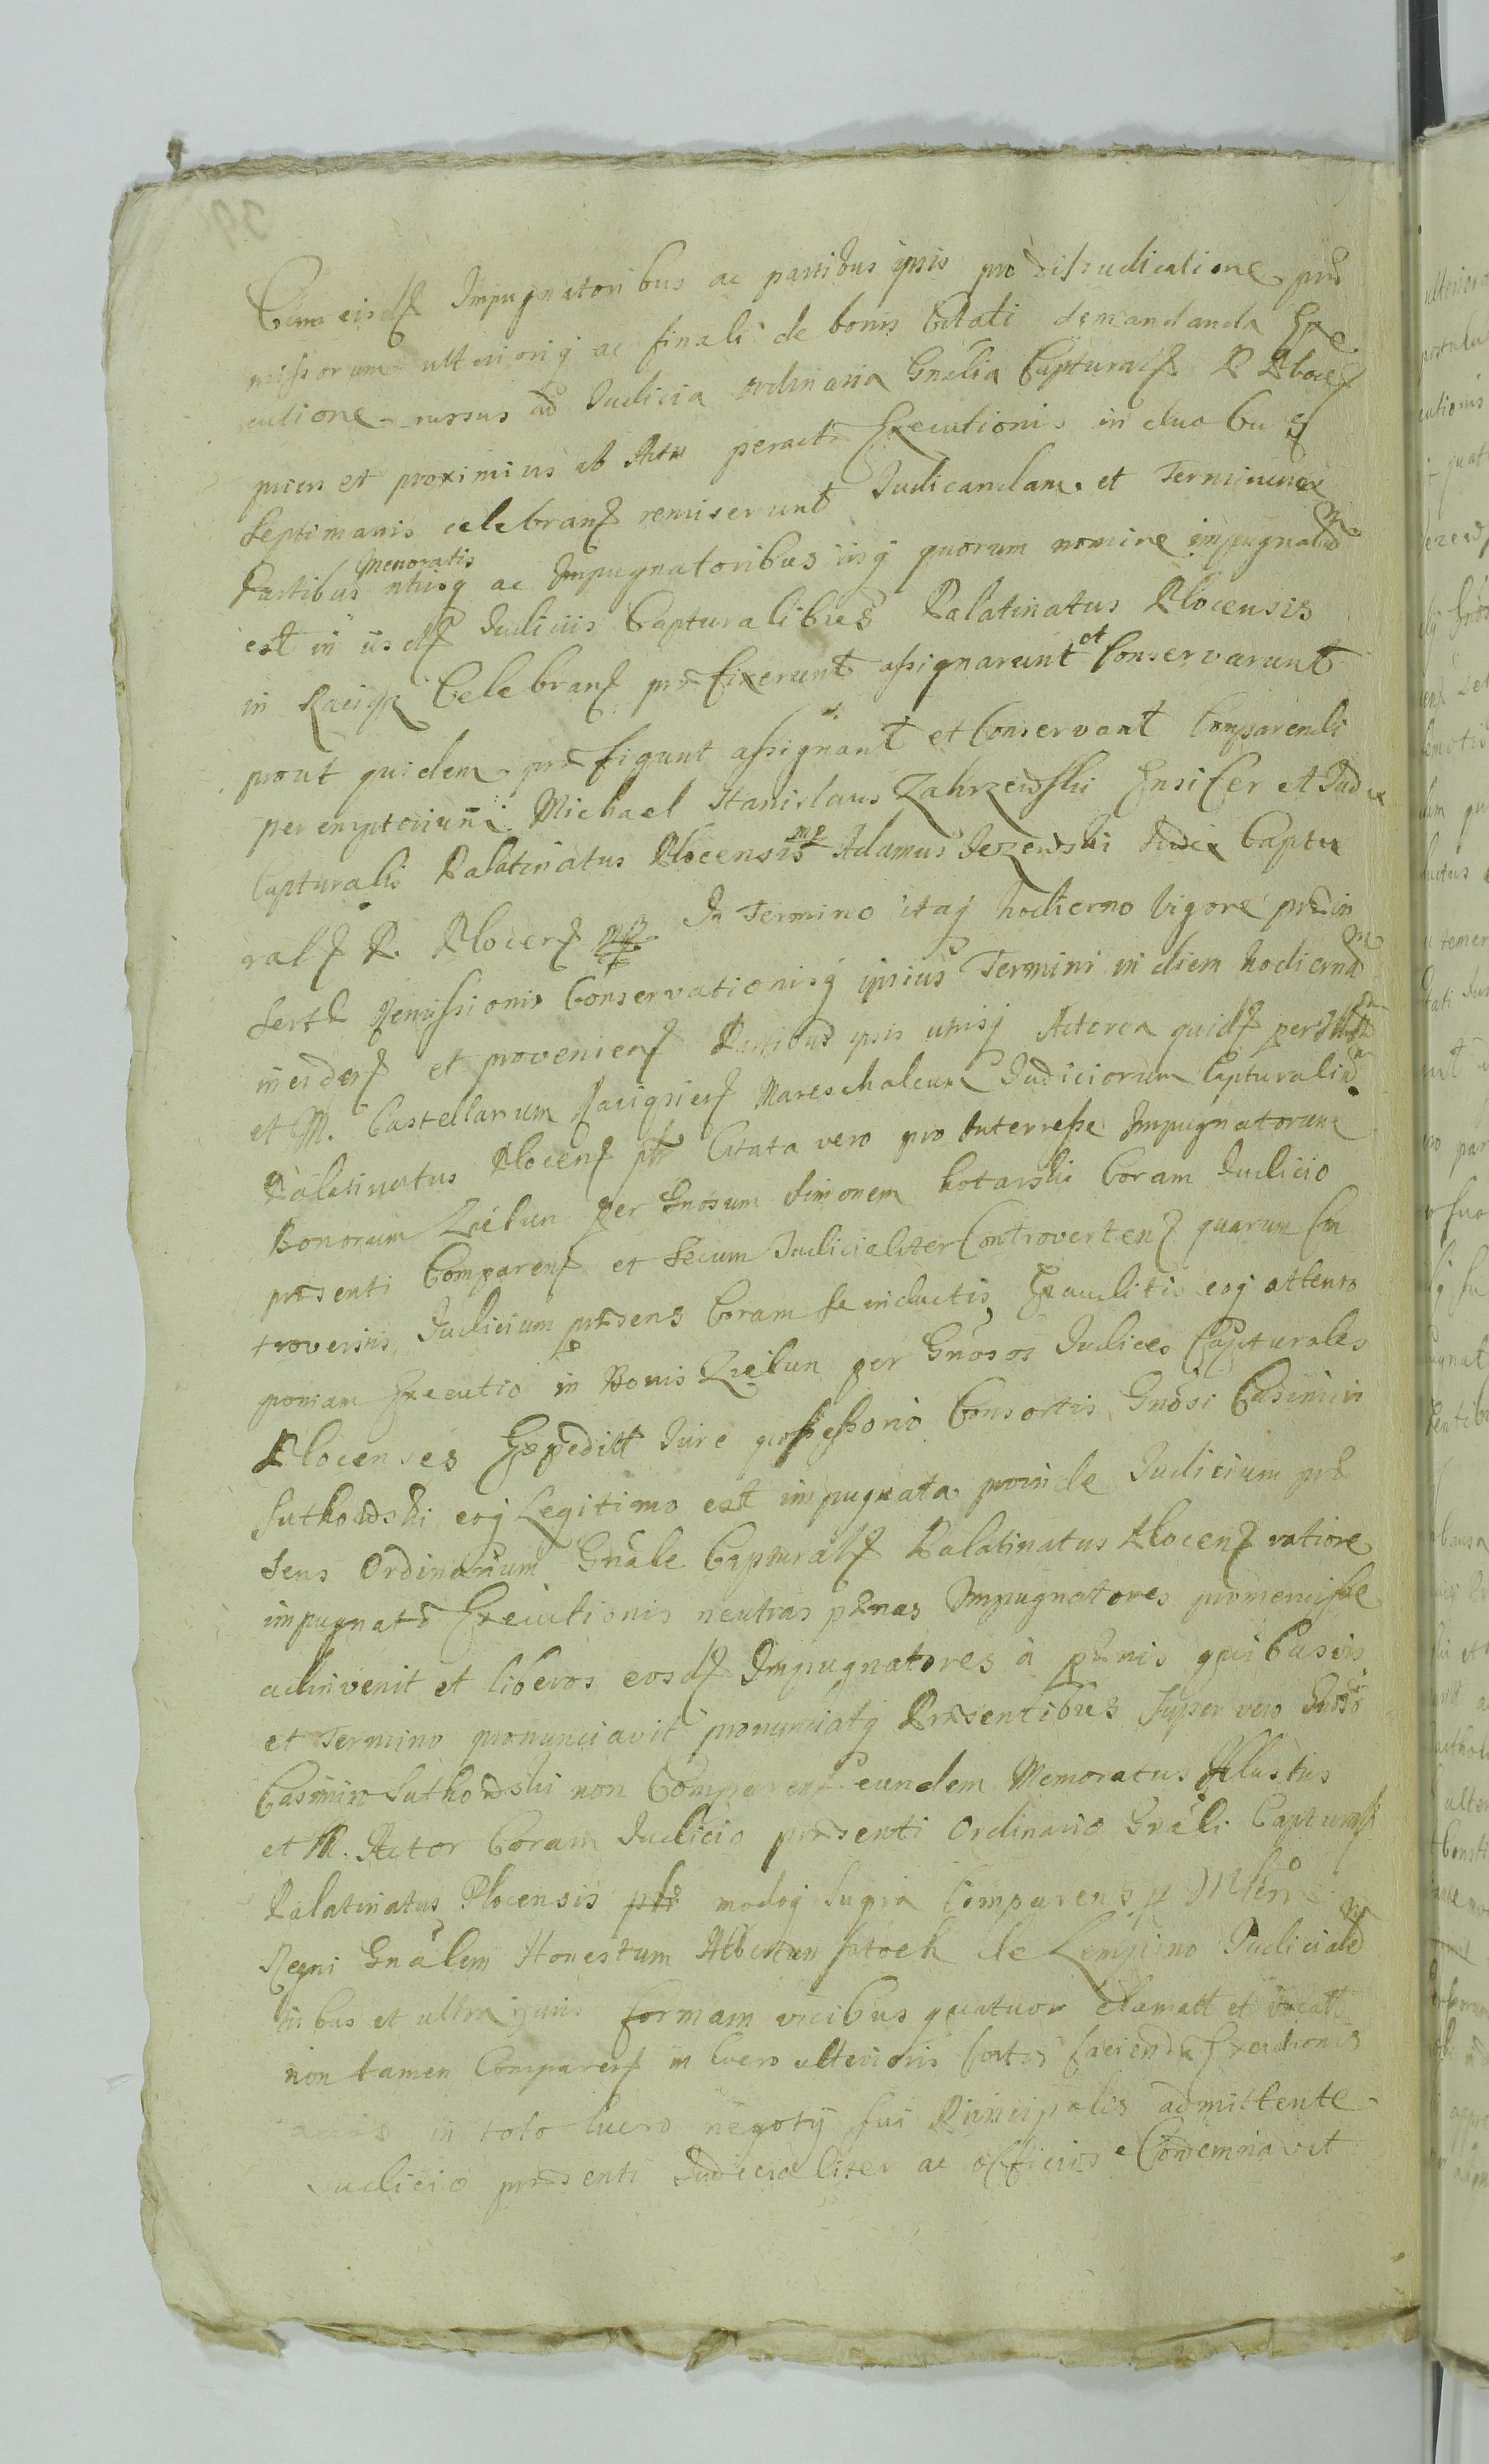 Cum eisdẽ Impugnatoribus ac partibus ipsis pro disjudicatione præ
missorum ulteriorisq ac finali de bonis Citati demandanda Exe
cutione rursus ad Judicia ordinaria Gnãlia Capturalẽ P Plocẽ
prius et proximius ab Actu peractæ Executionis in duabus
septimanis celebranẽ remiserunt Judicandam et Terminum
Partibus Memoratis utrisq ac Impugnatoribus iisq quorum nomine impugnatum
est in iisdẽ Judiciis Capturalibus Palatinatus Plocensis
in Raciąż Celebranẽ præfixerunt assignarunt et Conservarunt
prout quidem præfigunt assignant et Conservant Comparendi
peremptorium Michael Stanislaus Zakrzewski Ensifer et Judex
Capturalis Palatinatus Plocensis mp Adamus Jezewski Judex Captu
ralẽ P. Plocenẽ mp In Termino itaq hodierno Vigore præin
sertæ Remissionis Conservationisq ipsius Termini in diem hodiernam
incidenẽ et provenienẽ Partibus ipsis utrisq Actorea quidẽ per
et M. Castellanum Raciąznenẽ Mareschalcum Judiciorum Capturalium
Palatinatus Plocenẽ Citata vero pro Interesse Impugnatorum
Bonorum Zielun per Gnosum Simonem Kotarski Coram Judicio
præsenti Comparenẽ et secum Judicialiter Controvertenẽ quarum Con
troversiis Judicium præsens Coram se inductis Exauditis eoq attento
quoniam Executio in Bonis Zielun per Gnosos Judices Capturales
Plocenses Expedita Jure possessorio Consortis Gnosi Casimiri
Sutkowski eoq Legitimo est impugnata proinde Judicium præ
sens Ordinarium Gnãle Capturalẽ Palatinatus Plocenẽ ratione
impugnatæ Executionis neutras pænas Impugnatores promeruisse
adinvenit et liberos eosdẽ Impugnatores à pænis quibusvis
et Termino pronunciavit pronunciatq Præsentibus super vero Gnoso
Casimiro Sutkowski non Comparenẽ eundem Memoratus Illustris
et M. Actor Coram Judicio præsenti Ordinario Gnãli Capturalẽ
Palatinatus Plocensis modoq supra Comparens p Mlem
Regni Gnãlem Honestum Albertum Ptoch de Lempino Judicialem
tribus et ultra juris formam vicibus quatuor clamatt et vocatt
non tamen Comparenẽ in lucro ulterioris fortis faciendæ Executionis
in toto lucro negotij sui Principalis admittente
Judicio præsenti Judicialiter ac officiose Condemnavit